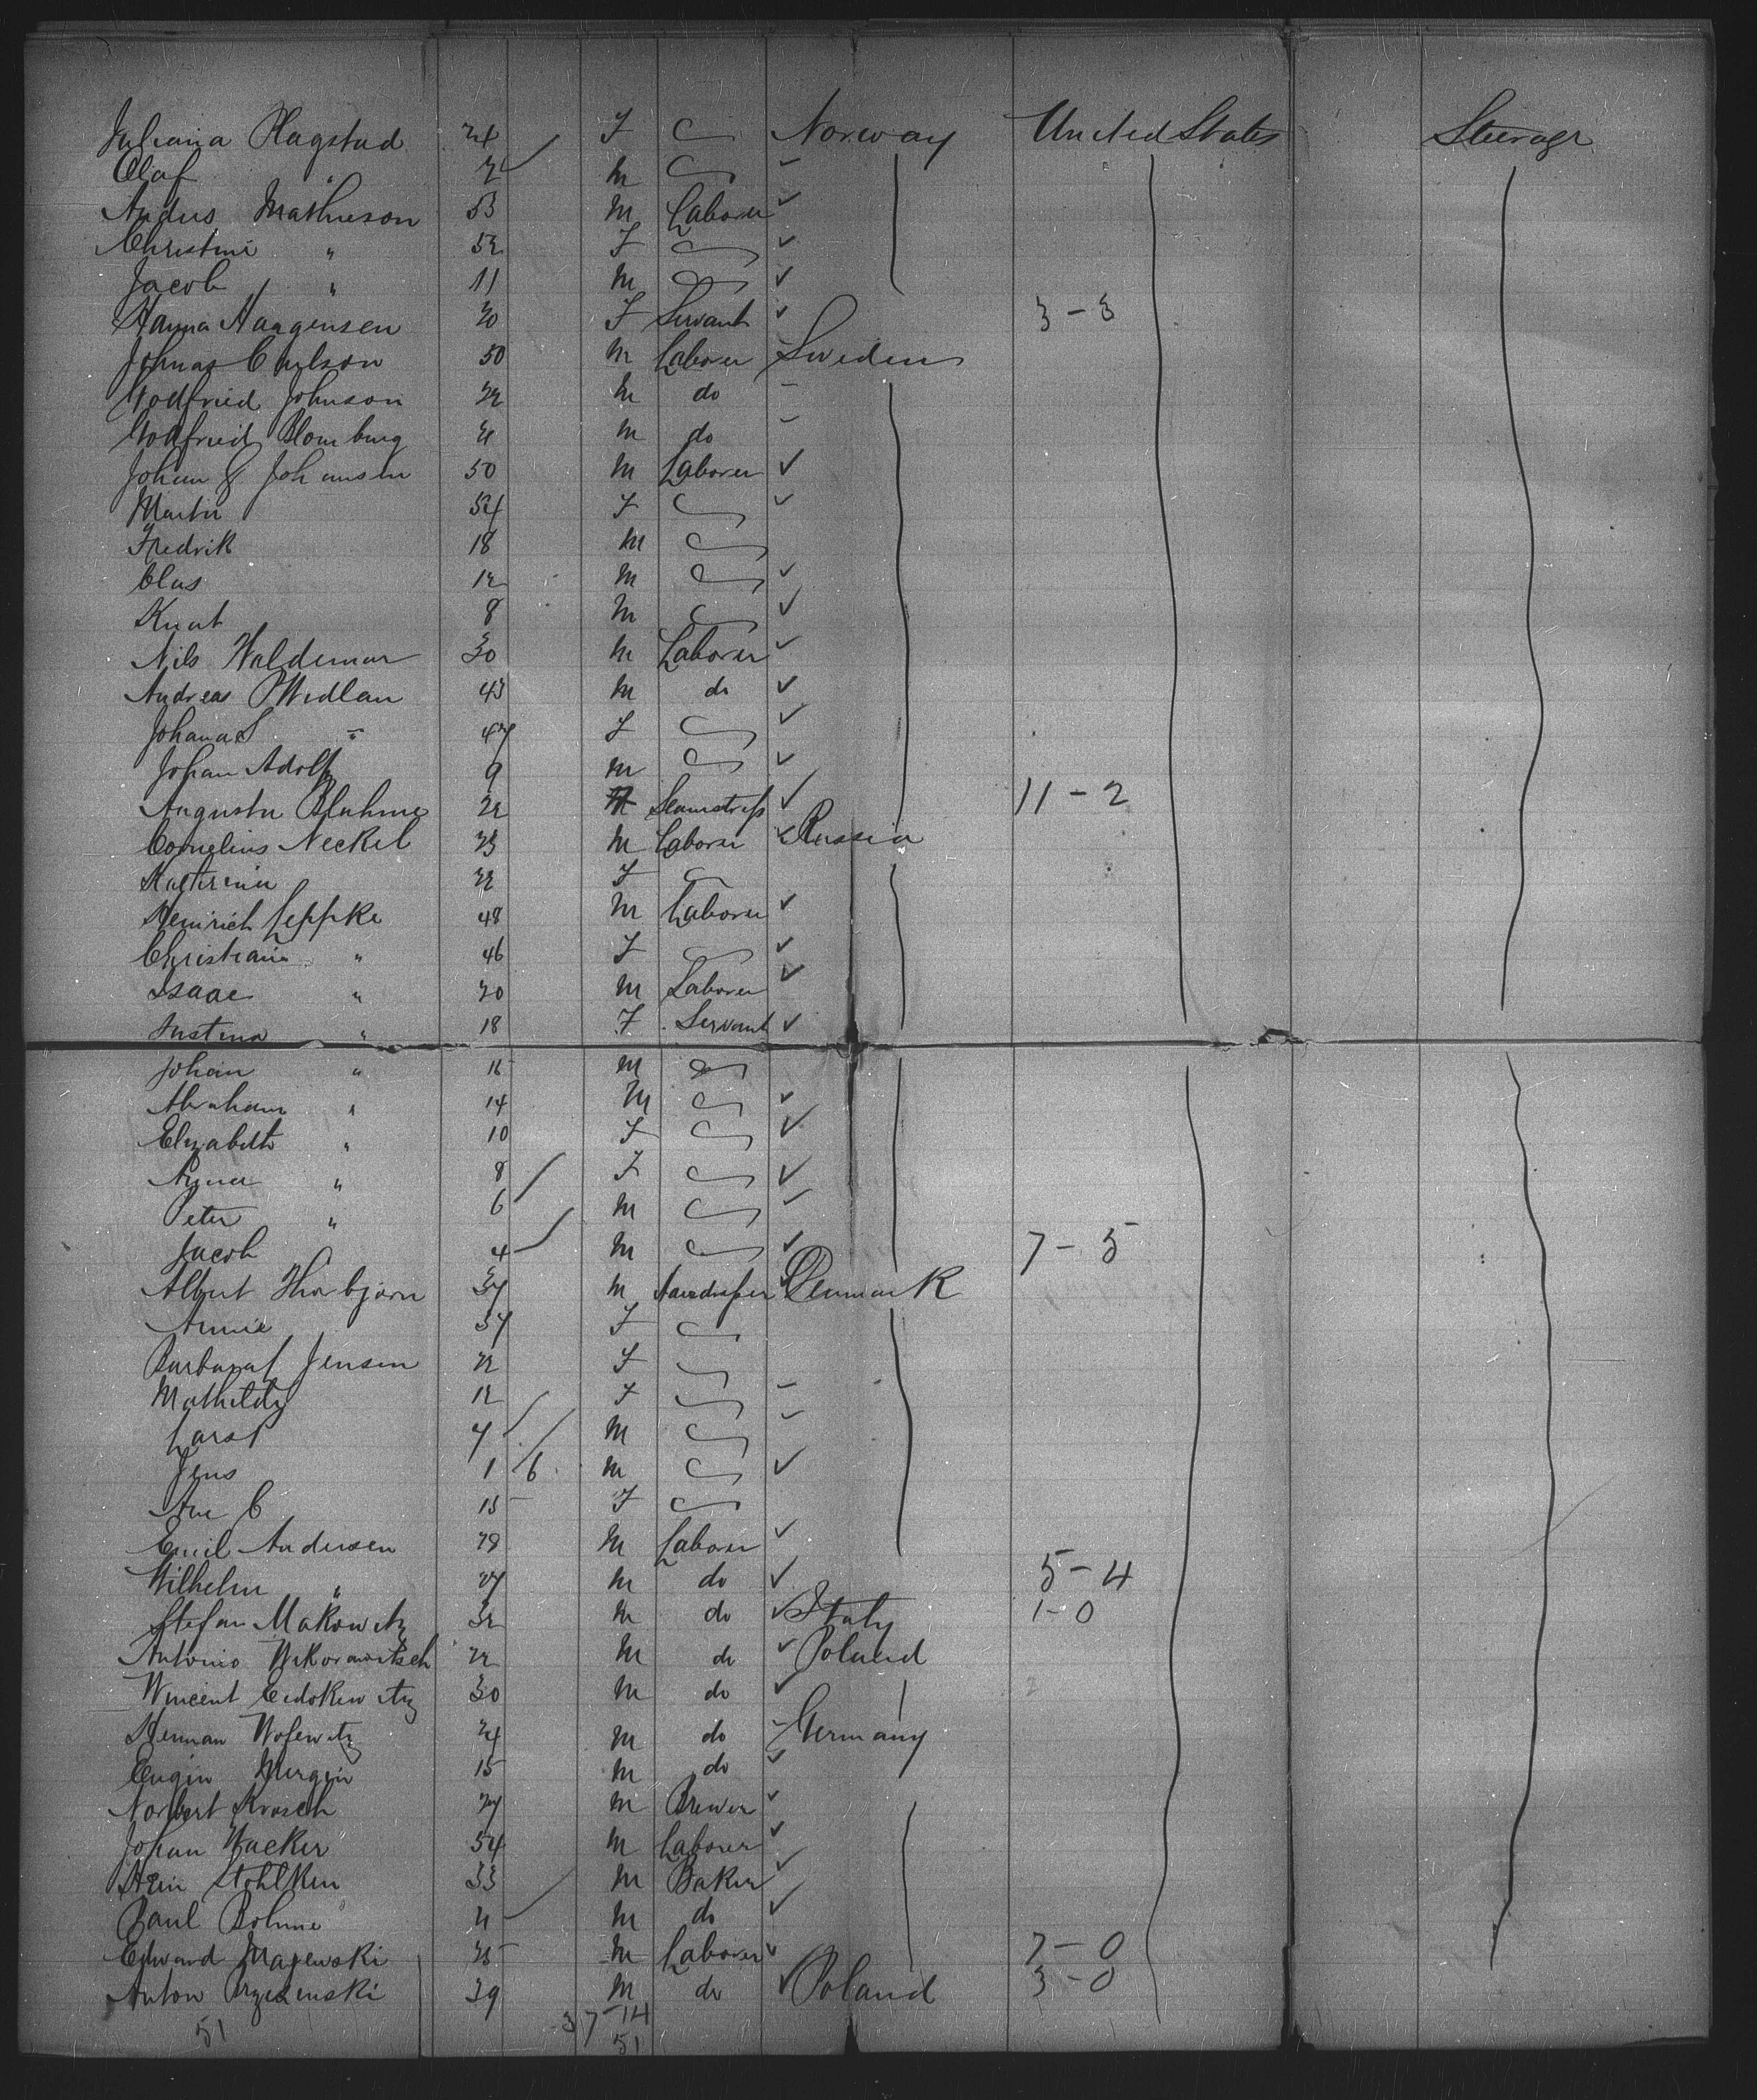 Juliana Hagstad 24 F Norway United States Steerage
Olaf " 2 M
Andus Mathieson 53 M Laborer ✓
Christine " 52 F ✓
Jacob " 11 M ✓
Hanna Haagensen 20 F Servant ✓ 3 - 3
Johnas Carlson 50 M Laborer Sweden
Godfried Johnson 22 M do
Godfried Blomburg 21 M do
Johan G Johansen 50 M Laborer ✓
Martin 54 F ✓
Fredrik 18 M
Clas 12 M ✓
Knut 8 M ✓
Nils Waldemar 30 M Laborer ✓
Andreas Widlan 43 M do ✓
Johana S " 47 F ✓
Johan Adolf 9 M ✓
Augusta Bluhme 22 Seamstress ✓ 11 - 2
Cornelius Neckel 23 M Laborer ✓ Russia
Katherina 22 F
Heinrich Leppke 48 M Laborer ✓
Christiana " 46 F ✓
Isaac " 20 M Laborer ✓
Justina " 18 F Servant ✓
Johan " 16 M
Abraham " 14 M ✓
Elizabeth " 10 F ✓
Anna " 8 F ✓
Peter " 6 M
Jacob 4 M ✓ 7 - 5
Albert Thorbjorn 37 M Denmark
Annie 37 F
Jensen 22 F
Mathilde 12 F
Lars P 4 M
Jens 1 6 M ✓
Ane C 15 F
Emil Andersen 28 M Laborer ✓
Wilhelm " 27 M do ✓ 5 - 4
Stefan Makowitz 32 M do ✓ Italy 1 - 0
Antonio 22 M do ✓ Poland
Wincent 30 M do ✓ 2
Herman Wolewitz 24 M do Germany
Eugin Mergin 15 M do ✓
Norbert Krosch 27 M Brewer ✓
Johan Wacker 54 M Laborer ✓
Hein Stohlken 33 M Baker ✓
Paul Bohme 21 M do ✓
Edward Majewski 25 M Laborer ✓ 7 - 0
Anton 39 M do ✓ Poland 3 - 0
37-14
51 51